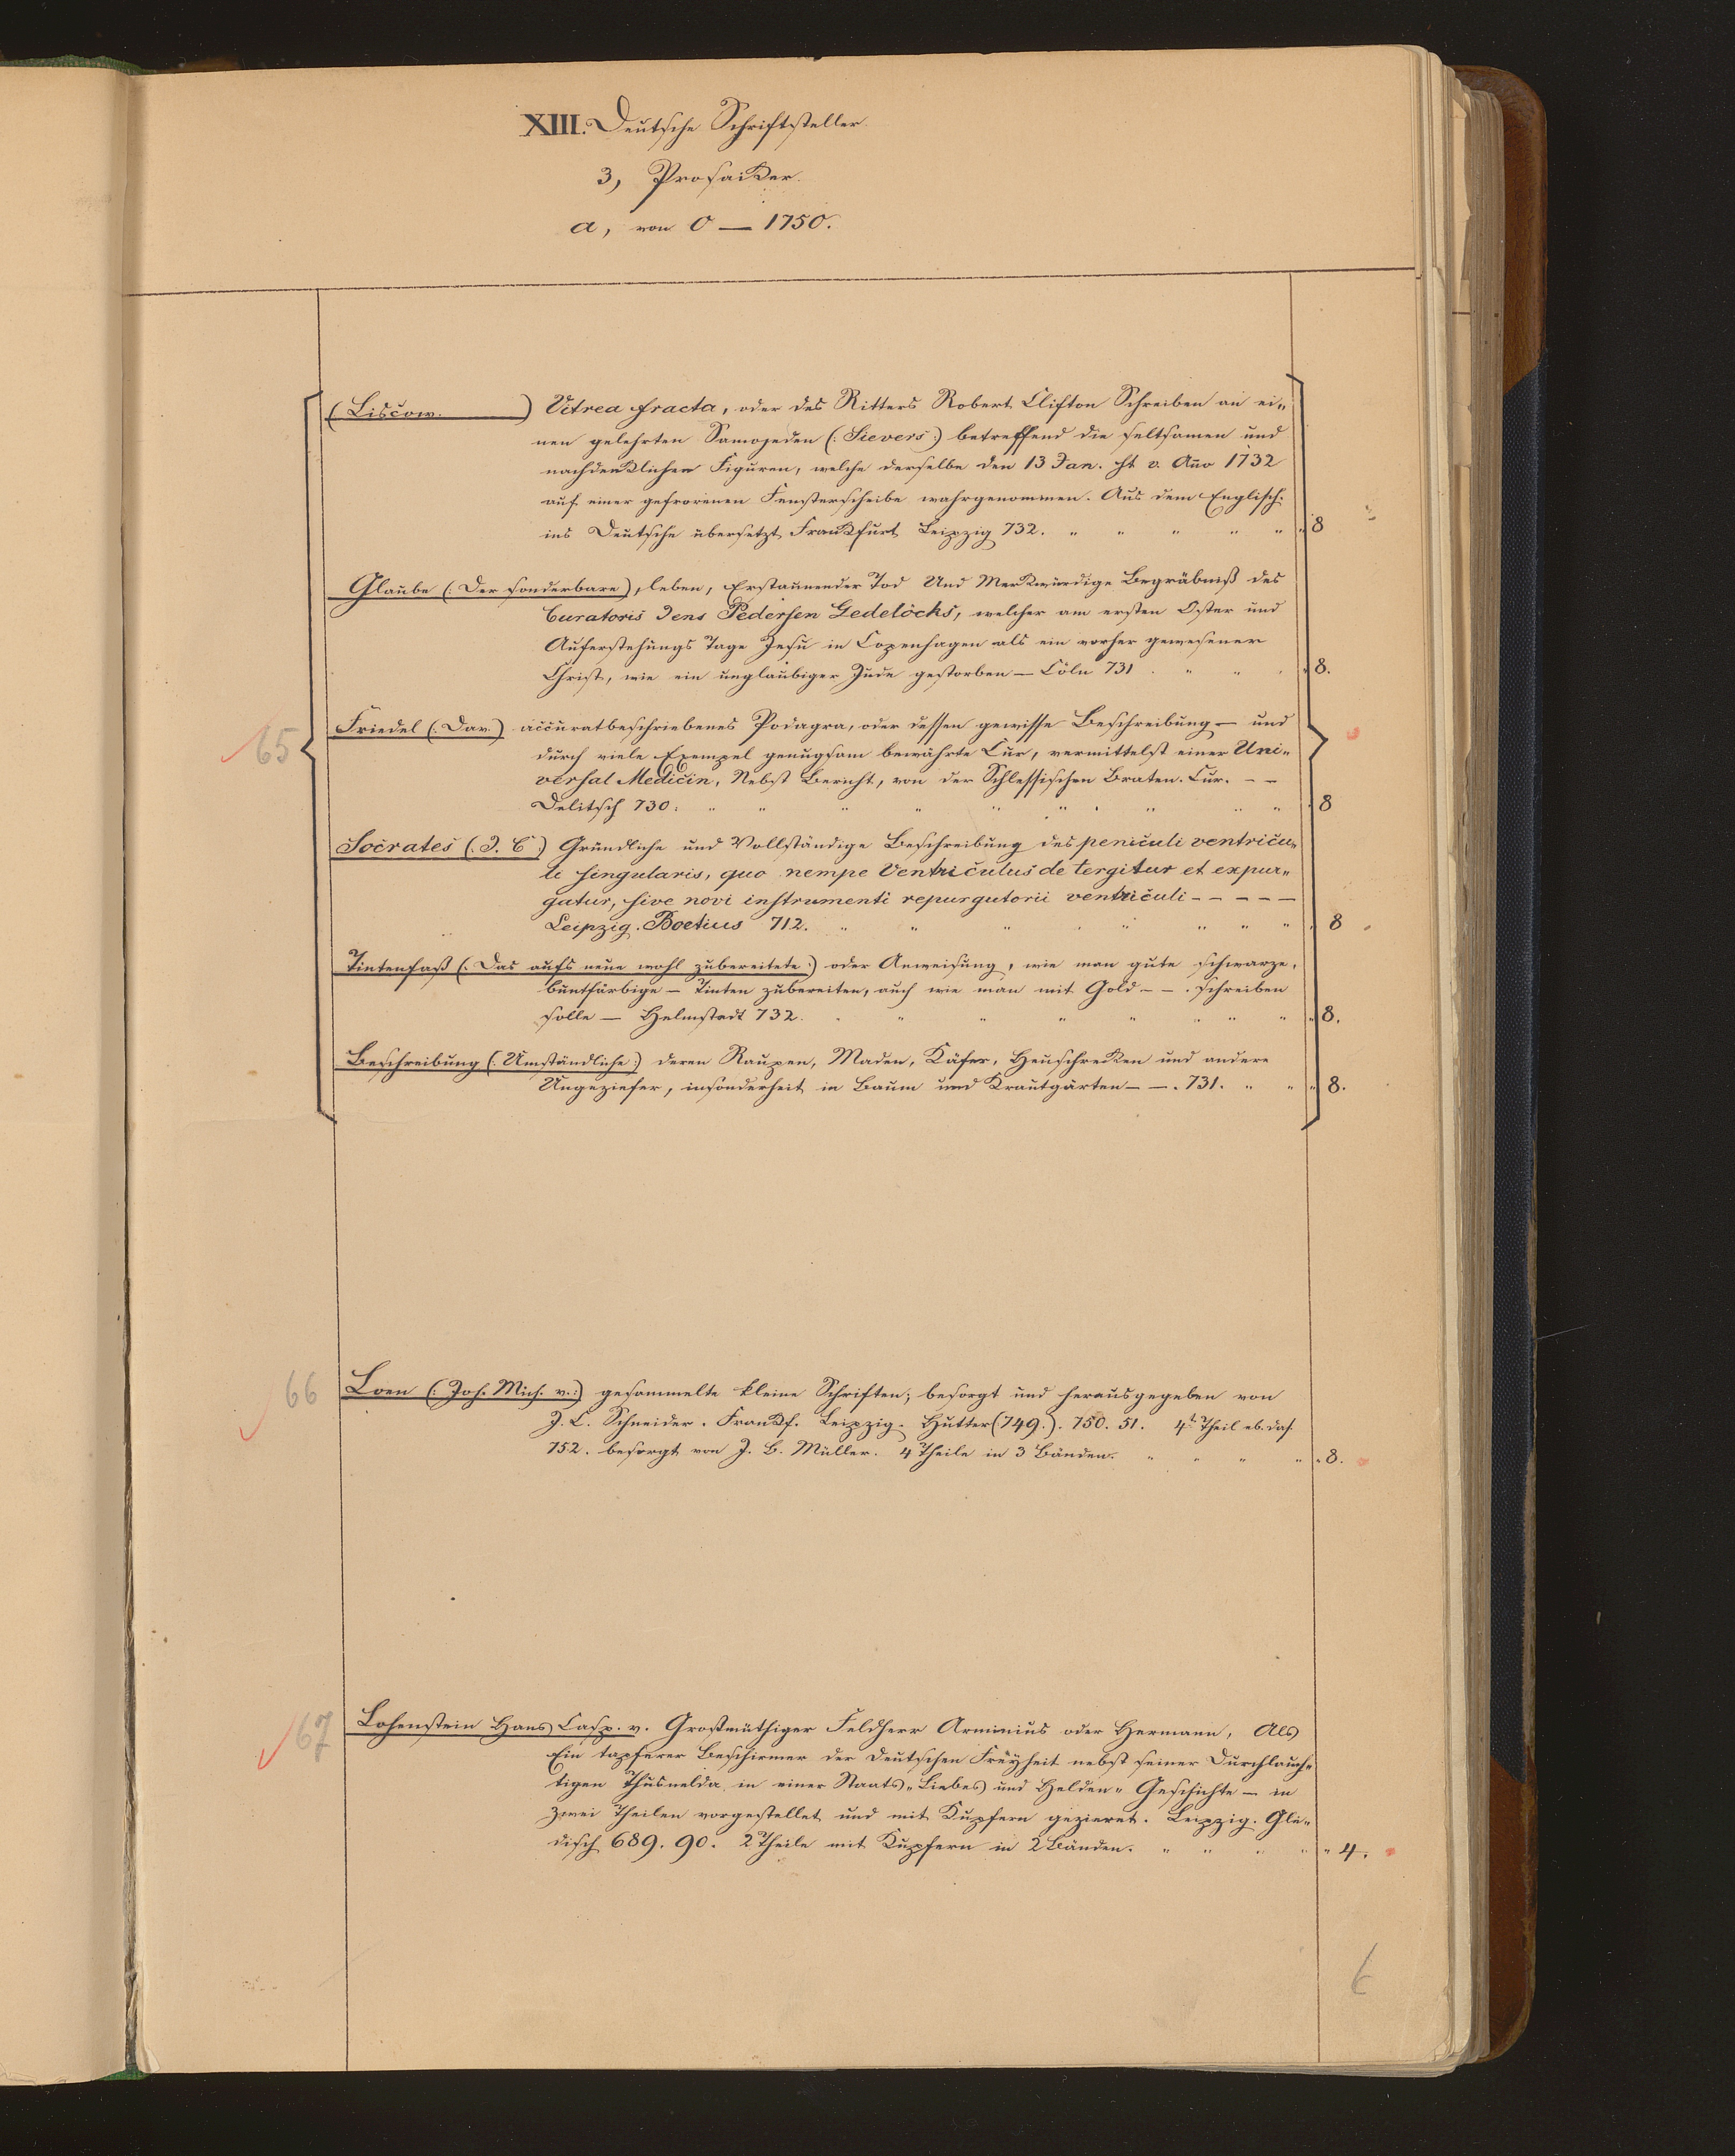 XIII. Deutsche Schriftsteller.
3, Prosaiker.
a, von 0 — 1750.
(Liscow. ) Vitrea fracta, oder des Ritters Robert Clifton Schreiben an ei„
nen gelehrten Samojeden (: Sievers :) betreffend die seltsamen und
nachdenklichen Figuren, welche derselbe den 13 Jan. st v. Año 1732
auf einer gefrorenen Fensterscheibe wahrgenommen. Aus dem Englisch.
ins Deutsche übersetzt Frankfurt Leipzig 732. " " " " " " 8
Glaube (: Der sonderbare), leben, Erstaunender Tod Und Merkwürdige Begräbniß des
Curatoris Jens Pedersen Gedelöcks, welcher am ersten Oster und
Auferstehungs Tage Jesu in Copenhagen als ein vorher gewesener
Christ, wie ein unglaubiger Jude gestorben — Cöln 731 . " " " " 8.
65 Friedel (: Dav.) accuratbeschriebenes Podagra, oder dessen gewisse Beschreibung — und
durch viele Exempel genugsam bewährte Cur, vermittelst einer Uni„
versal Medicin, Nebst Bericht, von der Schlessischen Braten. Cur. – –
Delitsch 730. " " " " " " " " " 8
Socrates (: J. C :) Gründliche und Vollständige Beschreibung des peniculi ventricu„
li singularis, quo nempe Ventriculus de tergitur et expur„
gatur, sive novi instrumenti repurgutorii ventriculi – – – – –
Leipzig. Boetius 712. " " " " " " " " 8
Tintenfaß (: Das aufs neue wohl zubereitete :) oder Anweisung, wie man gute schwarze,
buntfärbige — Tinten zubereiten, auch wie man mit Gold – – . schreiben
solle — Helmstadt 732. " " " " " " " " 8.
Beschreibung (: Umständliche :) deren Raupen, Maden, Käfer, Heuschrecken und andere
Ungeziefer, insonderheit in Baum und Krautgärten – – . 731. " " " 8.
66 Loen (: Joh. Mich. v. :) gesammelte kleine Schriften; besorgt und herausgegeben von
J. C. Schneider. Frankf. Leipzig. Hutter (749.). 750. 51. 4t Theil eb. das.
752. besorgt von J. B. Müller. 4 Theile in 3 Bänden. " " " " " 8.
67 Lohenstein Hans Casp. v. Großmüthiger Feldherr Arminius oder Hermann, Als
Ein tapferer Beschirmer der Deutschen Freyheit nebst seiner Durchlauch„
tigen Thusnelda in einer Staats„ Liebes und Helden„ Geschichte — in
zwei Theilen vorgestellet und mit Kupfern gezieret. Leipzig. Gle„
disch 689. 90. 2 Theile mit Kupfern in 2 Bänden. " " " " " 4.